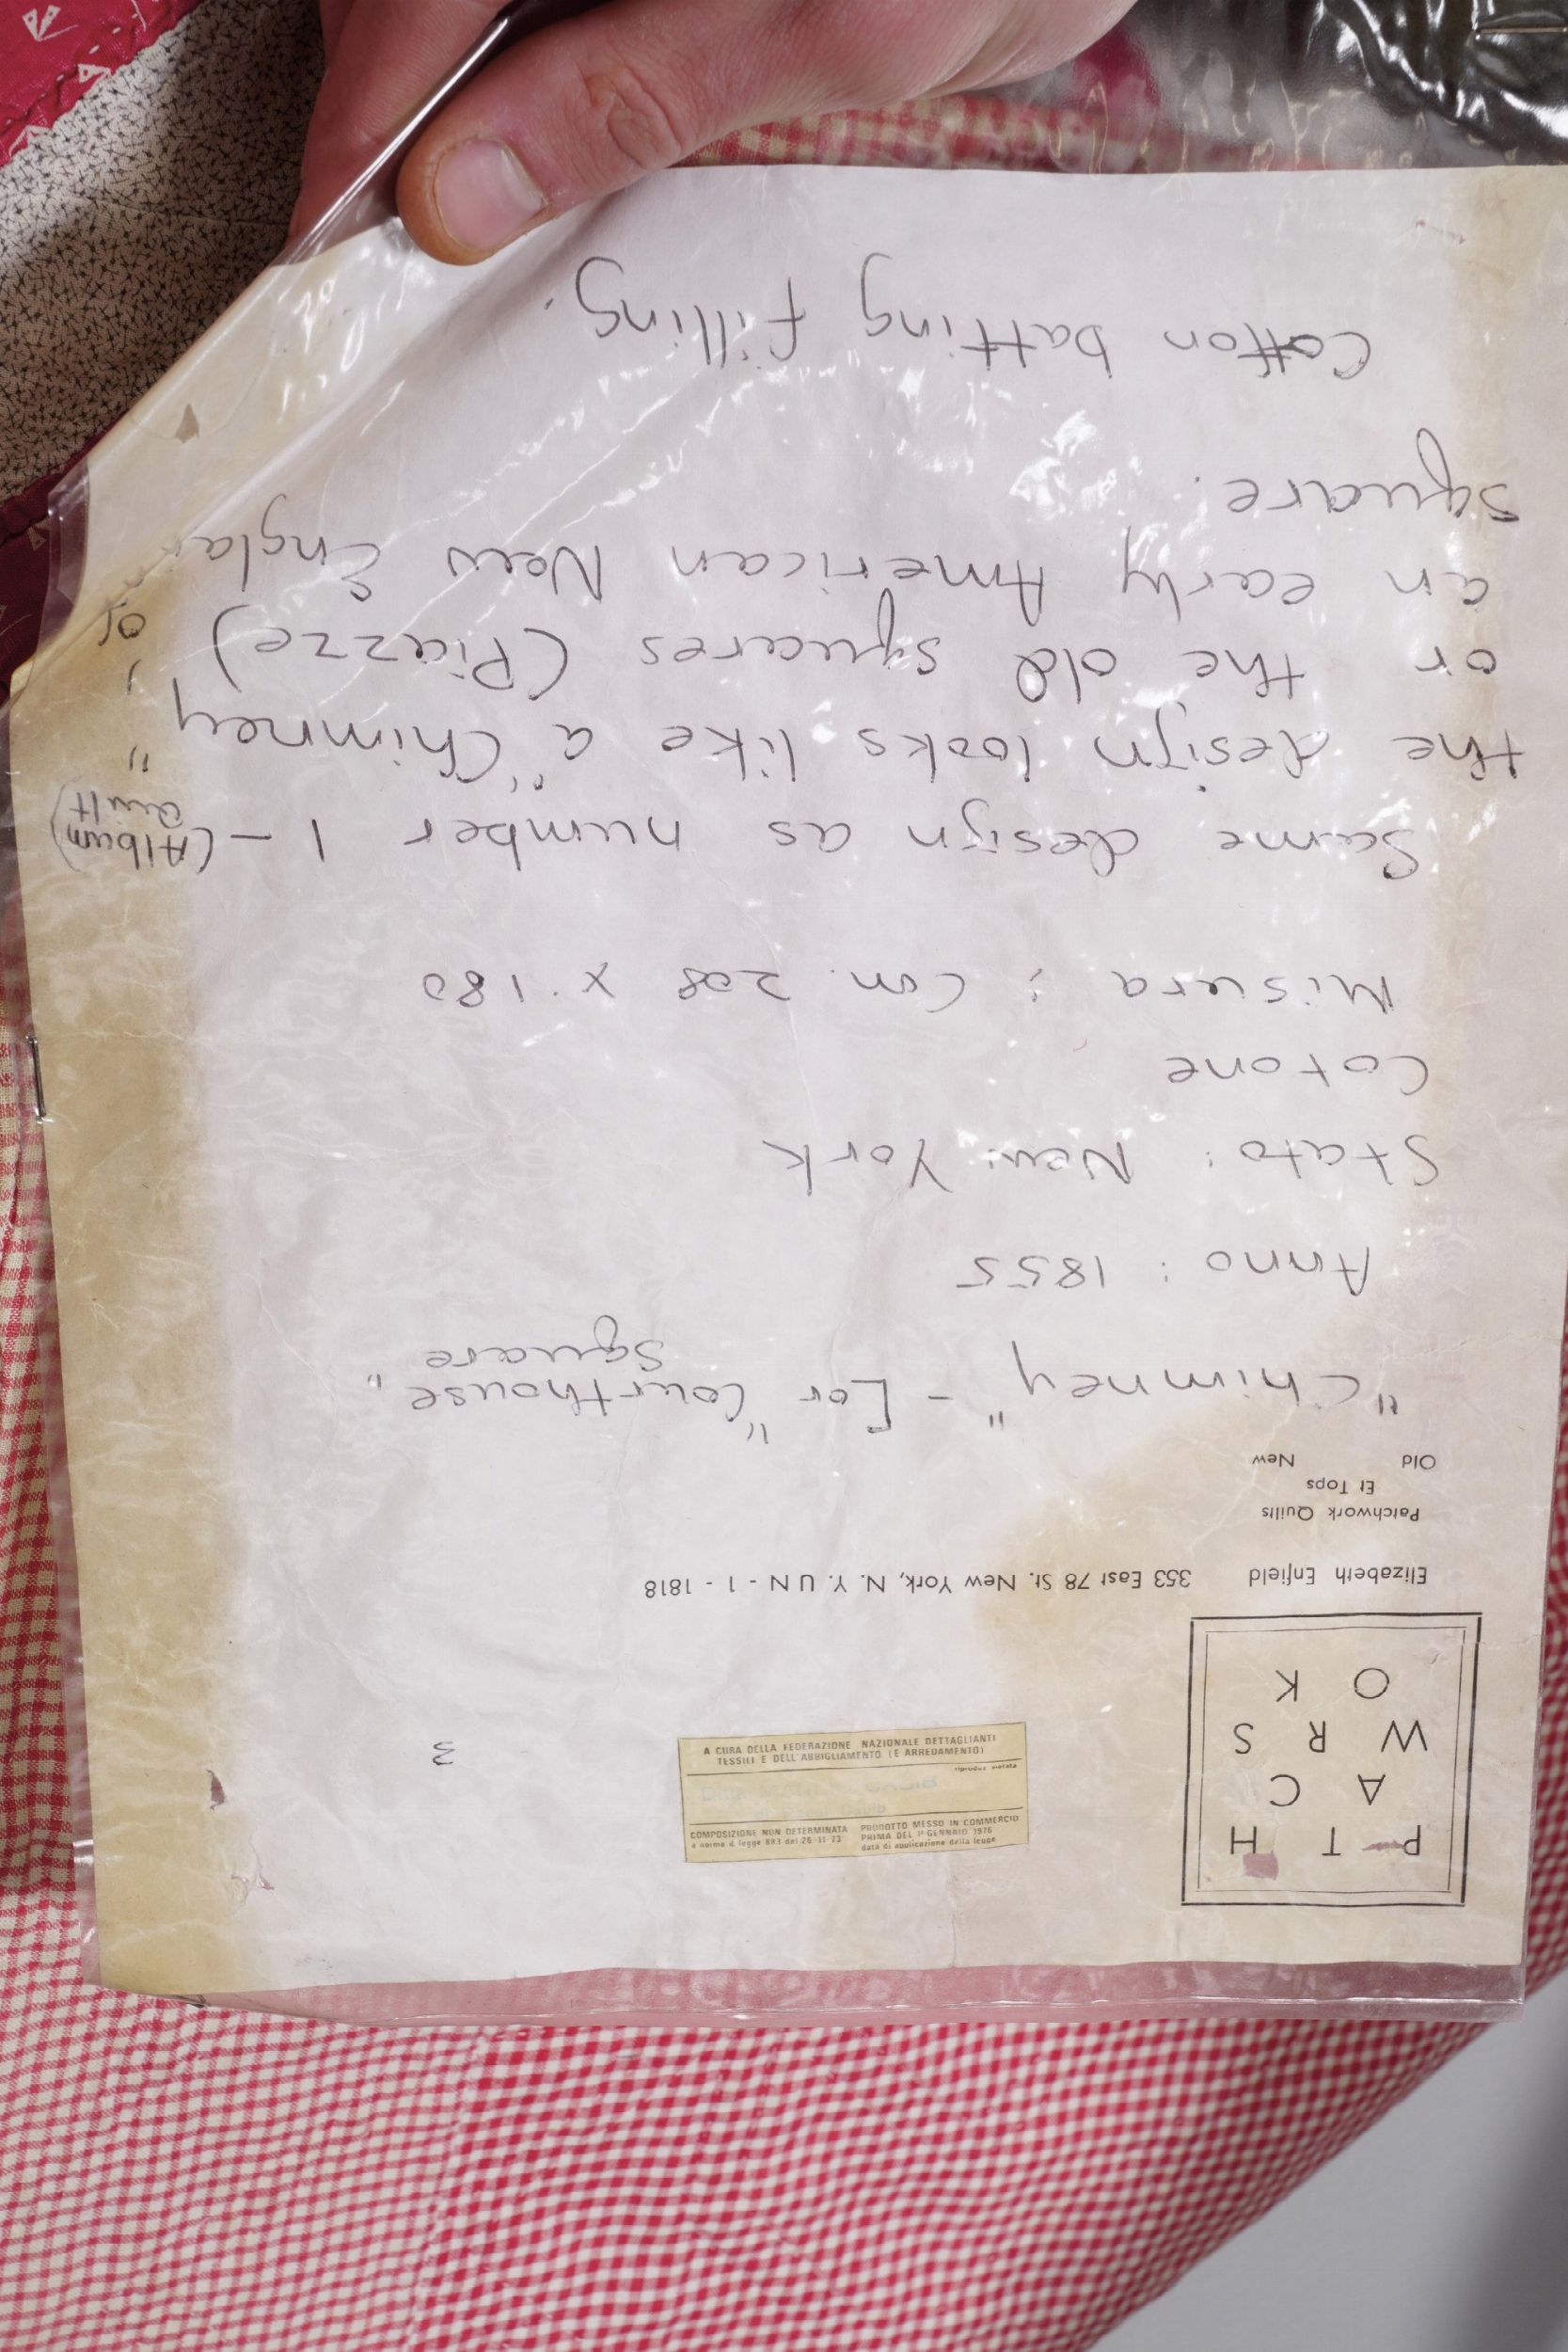 P T H
A C
W R S
O K
3
A CURA DELLA FEDERAZIONE NAZIONALE DETTAGLIANTI
TESSILI E DELL'ABBIGLIAMENTO (E ARREDAMENTO)
COMPOSIZIONE NON DETERMINATA
a norma d. legge 883 del 26-11-73
PRODOTTO MESSO IN COMMERCIO
PRIMA DEL 1° GENNAIO 1976
data di applicazione della legge
Elizabeth Enfield 353 East 78 St. New York, N. Y. U N - 1 - 1818
Patchwork Quilts
Et Tops
Old New
"Chimney" - [or "Courthouse"
Square
Anno: 1855
Stato: New York
Cotone
Misura: Cm. 208 x 180
Same design as number 1 - (Album
Quilt)
the design looks like a "Chimney",
or the old squares (Piazze) of
an early American New
Square.
Cotton batting filling.